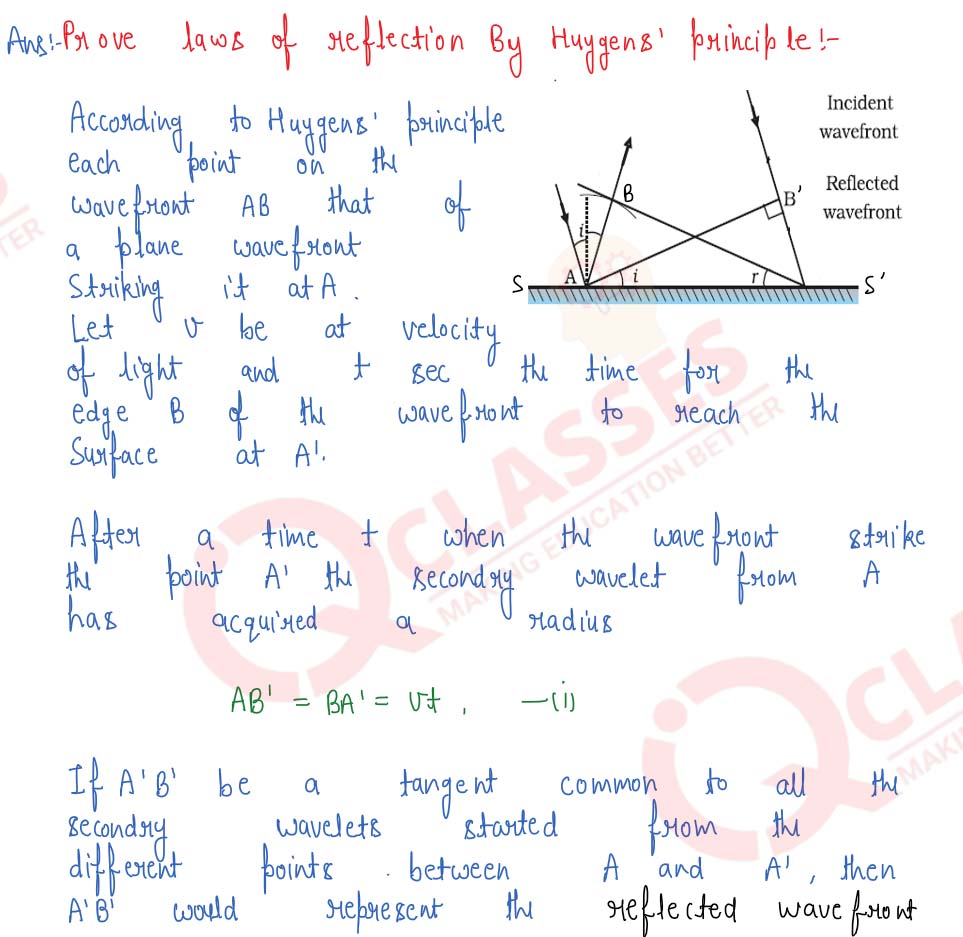 Ans:- Prove laws of reflection By Huygens' principle:-
According to Huygens' principle
each point on the
wavefront AB that of
a plane wavefront
Striking it at A.
Let v be at velocity
of light and t sec the time for the
edge B of the wavefront to reach the
Surface at A'.
Incident
wavefront
Reflected
wavefront
B
B'
i
A
i
r
S
S'
After a time t when the wavefront strike
the point A' the secondry wavelet from A
has acquired a radius
AB' = BA' = vt, —(i)
If A'B' be a tangent common to all the
secondry wavelets started from the
different points between A and A', then
A'B' would represent the reflected wavefront
CLASSES
MAKING EDUCATION BETTER
CLA
MAKIN
TER